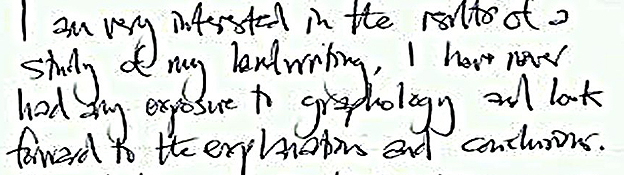 I am very interested in the results of a
study of my handwriting. I have never
had any exposure to graphology and look
forward to the explanations and conclusions.